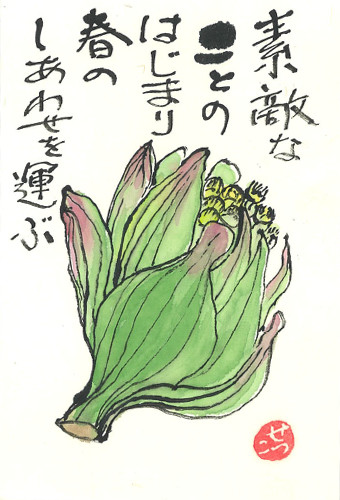 素敵な
ことの
はじまり
春の
しあわせを運ぶ
せつこ